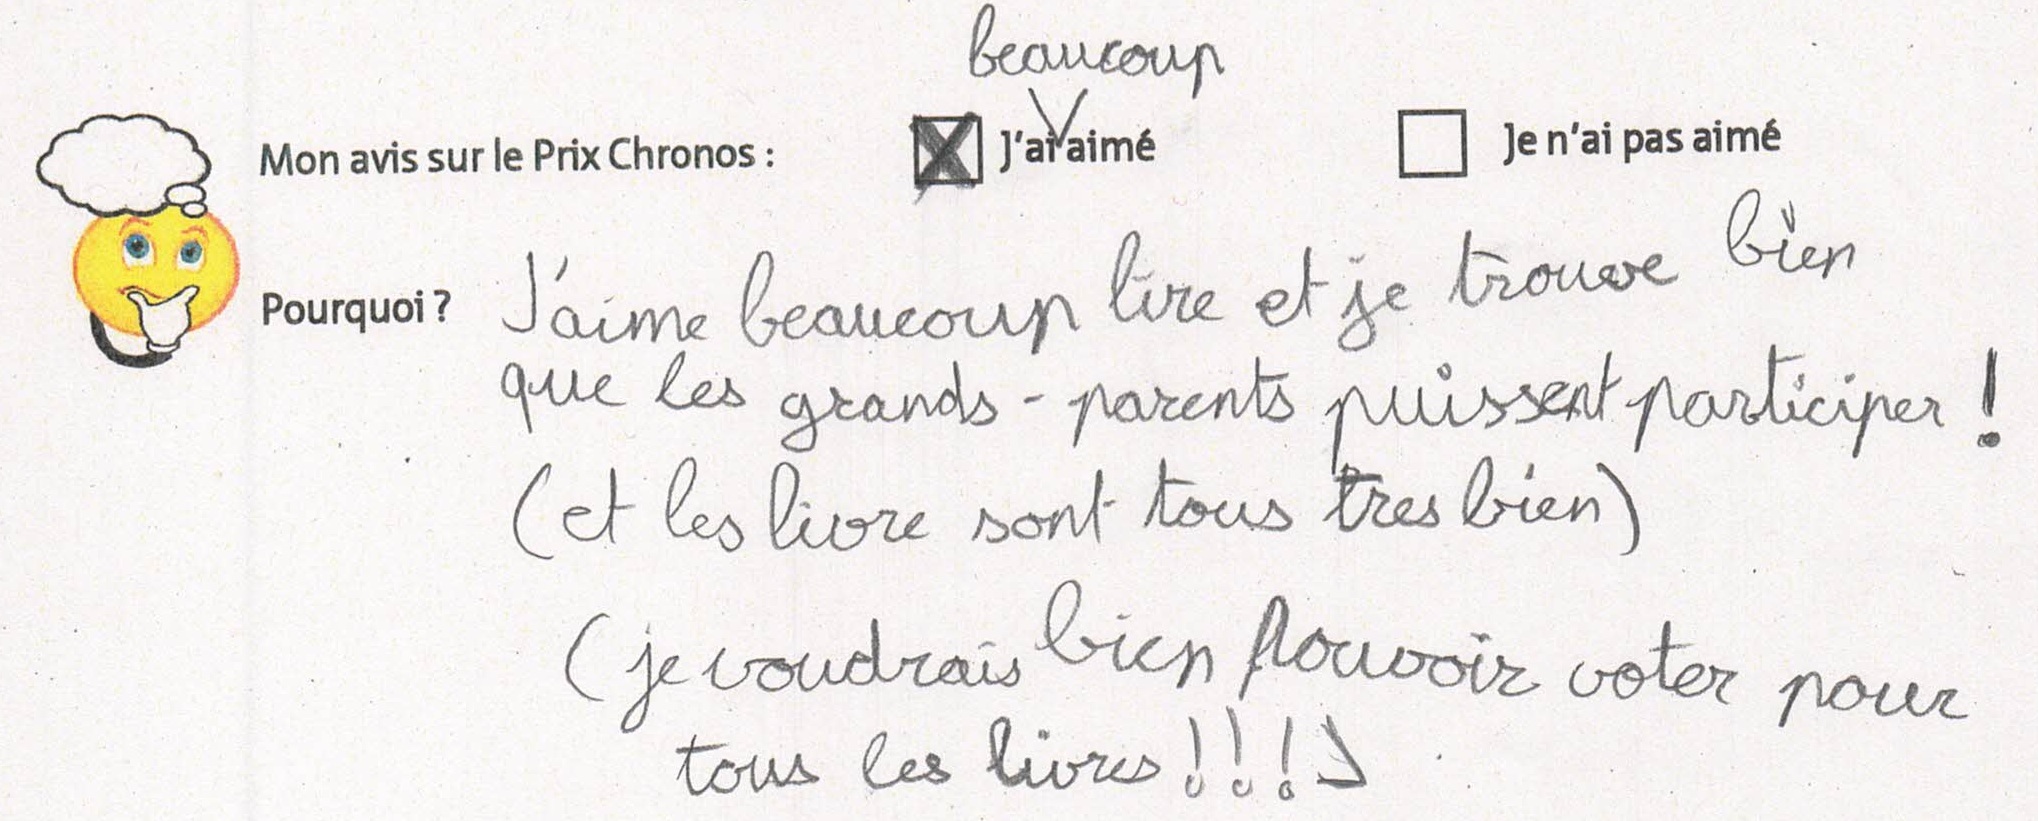 beaucoup
Mon avis sur le Prix Chronos : J'ai aimé Je n'ai pas aimé
Pourquoi ? J'aime beaucoup lire et je trouve bien
que les grands-parents puissent participer !
(et les livre sont tous tres bien)
(je voudrais bien pouvoir voter pour
tous les livres !!!)